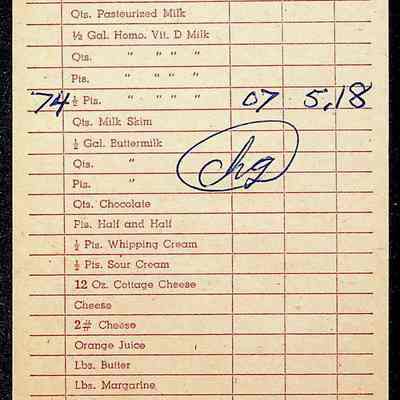 Qts. Pasteurized Milk
½ Gal. Homo. Vit. D Milk
Qts. " " " "
Pts. " " " "
74 ½ Pts. " " " " 07 5.18
Qts. Milk Skim
½ Gal. Buttermilk
Qts. "
chg
Pts. "
Qts. Chocolate
Pts. Half and Half
½ Pts. Whipping Cream
½ Pts. Sour Cream
12 Oz. Cottage Cheese
Cheese
2# Cheese
Orange Juice
Lbs. Butter
Lbs. Margarine